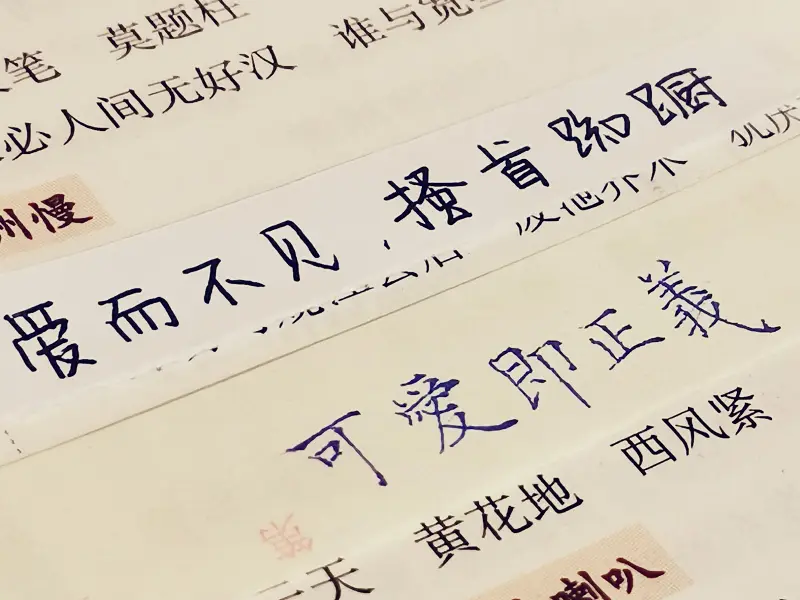 笔 莫题柱
必人间无好汉 谁与宽
州慢
爱而不见，搔首踟蹰
可愛即正義
天 黄花地 西风紧
喇叭